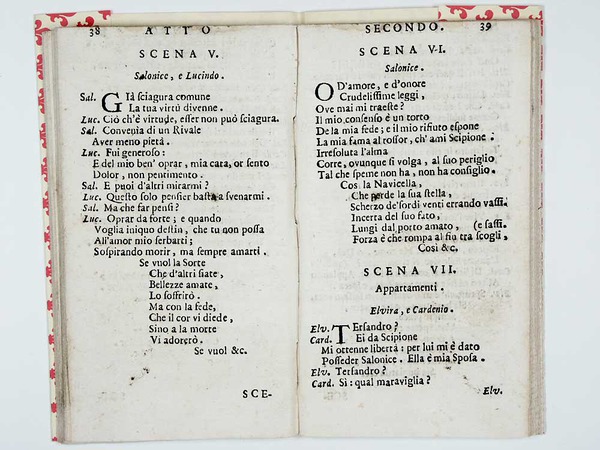 38 ATTO
SCENA V.
Salonice, e Lucindo.
Sal. Già sciagura comune
La tua virtù divenne.
Luc. Ciò ch'è virtude, esser non può sciagura.
Sal. Convenia di un Rivale
Aver meno pietà.
Luc. Fui generoso:
E del mio ben' oprar, mia cara, or sento
Dolor, non pentimento.
Sal. E puoi d'altri mirarmi?
Luc. Questo solo pensier basta a svenarmi.
Sal. Ma che far pensi?
Luc. Oprar da forte; e quando
Voglia iniquo destin, che tu non possa
All'amor mio serbarti;
Sospirando morir, ma sempre amarti.
Se vuol la Sorte
Che d'altri siate,
Bellezze amate,
Lo soffrirò.
Ma con la fede,
Che il cor vi diede,
Sino a la morte
Vi adorerò.
Se vuol &c.
SCE-
SECONDO. 39
SCENA VI.
Salonice.
O D'amore, e d'onore
Crudelissime leggi,
Ove mai mi traeste?
Il mio consenso è un torto
De la mia fede; e il mio rifiuto espone
La mia fama al rossor, ch'ami Scipione.
Irresoluta l'alma
Corre, ovunque si volga, al suo periglio
Tal che speme non ha, non ha consiglio.
Così la Navicella,
Che perde la sua stella,
Scherzo de' sordi venti errando vassi.
Incerta del suo fato,
Lungi dal porto amato, (e sassi.
Forza è che rompa al fin tra scogli,
Così &c.
SCENA VII.
Appartamenti.
Elvira, e Cardenio.
Elv. Tersandro?
Card. Ei da Scipione
Mi ottenne libertà: per lui mi è dato
Posseder Salonice. Ella è mia Sposa.
Elv. Tersandro?
Card. Sì: qual maraviglia?
Elv.